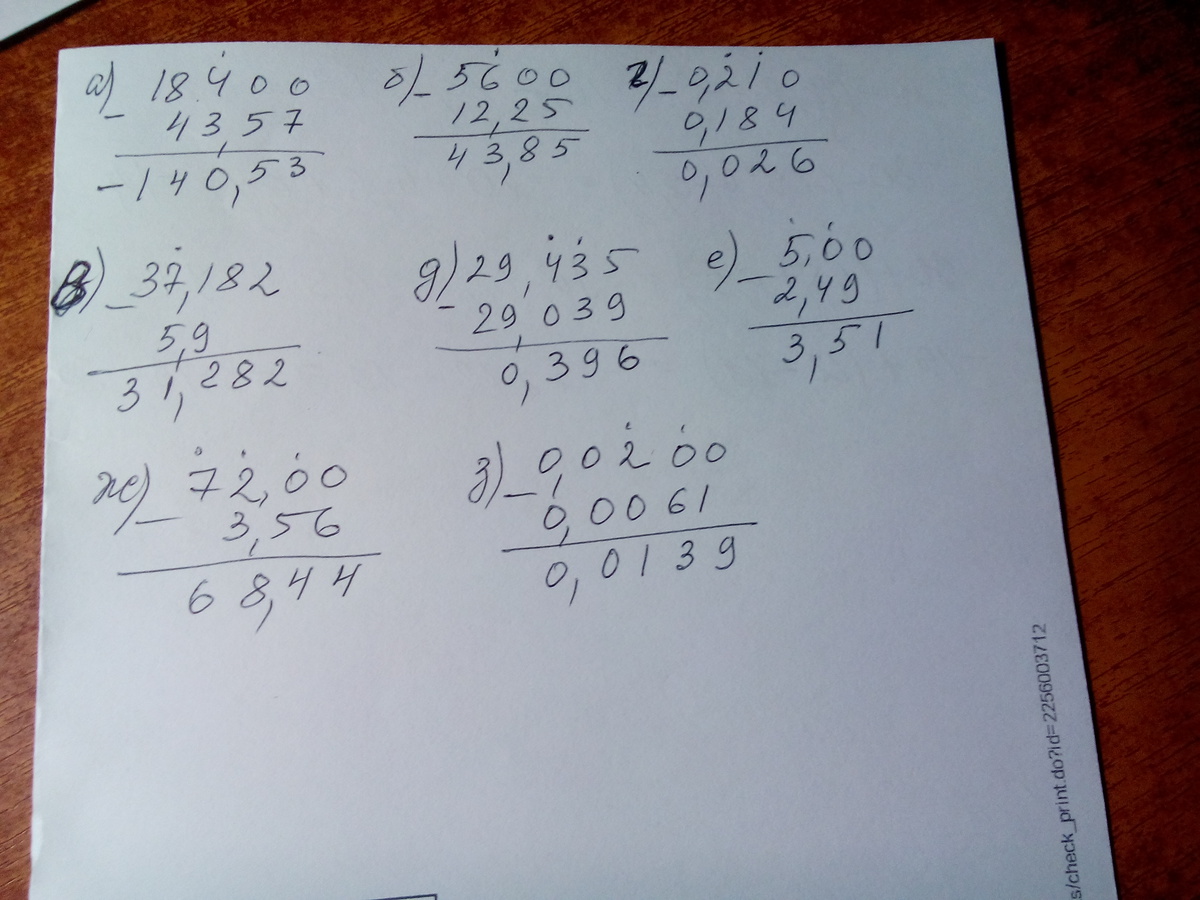 а) - 18400
43,57
- 140,53
б) - 5600
12,25
43,85
г) - 0,210
0,184
0,026
в) - 37,182
5,9
31,282
д) - 29,435
29,039
0,396
е) - 5,00
2,49
3,51
ж) - 72,00
3,56
68,44
з) - 0,0200
0,0061
0,0139
s/check_print.do?id=2256003712